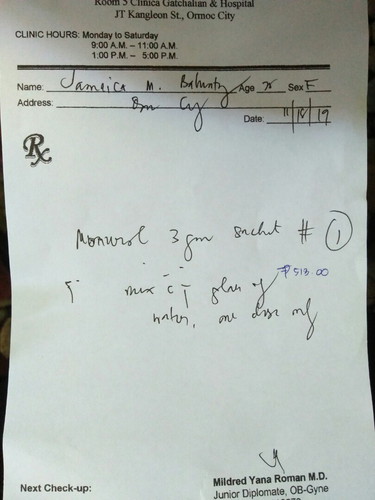 Room 5 Clinica Gatchalian & Hospital
JT Kangleon St., Ormoc City
CLINIC HOURS: Monday to Saturday
9:00 A.M. – 11:00 A.M.
1:00 P.M. – 5:00 P.M.
Name: Jamaica M. Age Sex F
Address: Orm Cy
Date: 11/18/19
Rx
Monurol 3 gm sachet # 1
₱513.00
mix c̄ 1 glass of
water, one dose only
Mildred Yana Roman M.D.
Next Check-up: Junior Diplomate, OB-Gyne